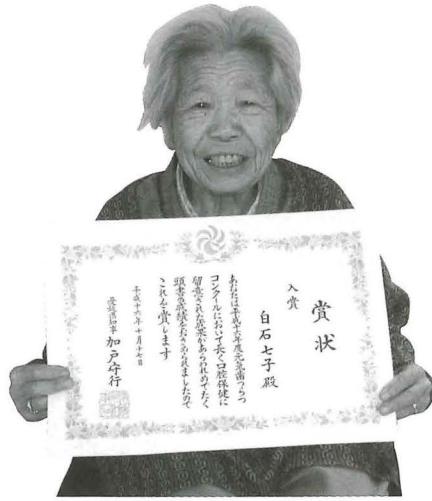 賞状
入賞
白石七子殿
あなたは平成十六年度元気歯つらつ
コンクールにおいて長く口腔保健に
留意された成果があらわれめでたく
頭書の成績をおさめられましたので
これを賞します
平成十六年十月十七日
愛媛県知事 加戸守行